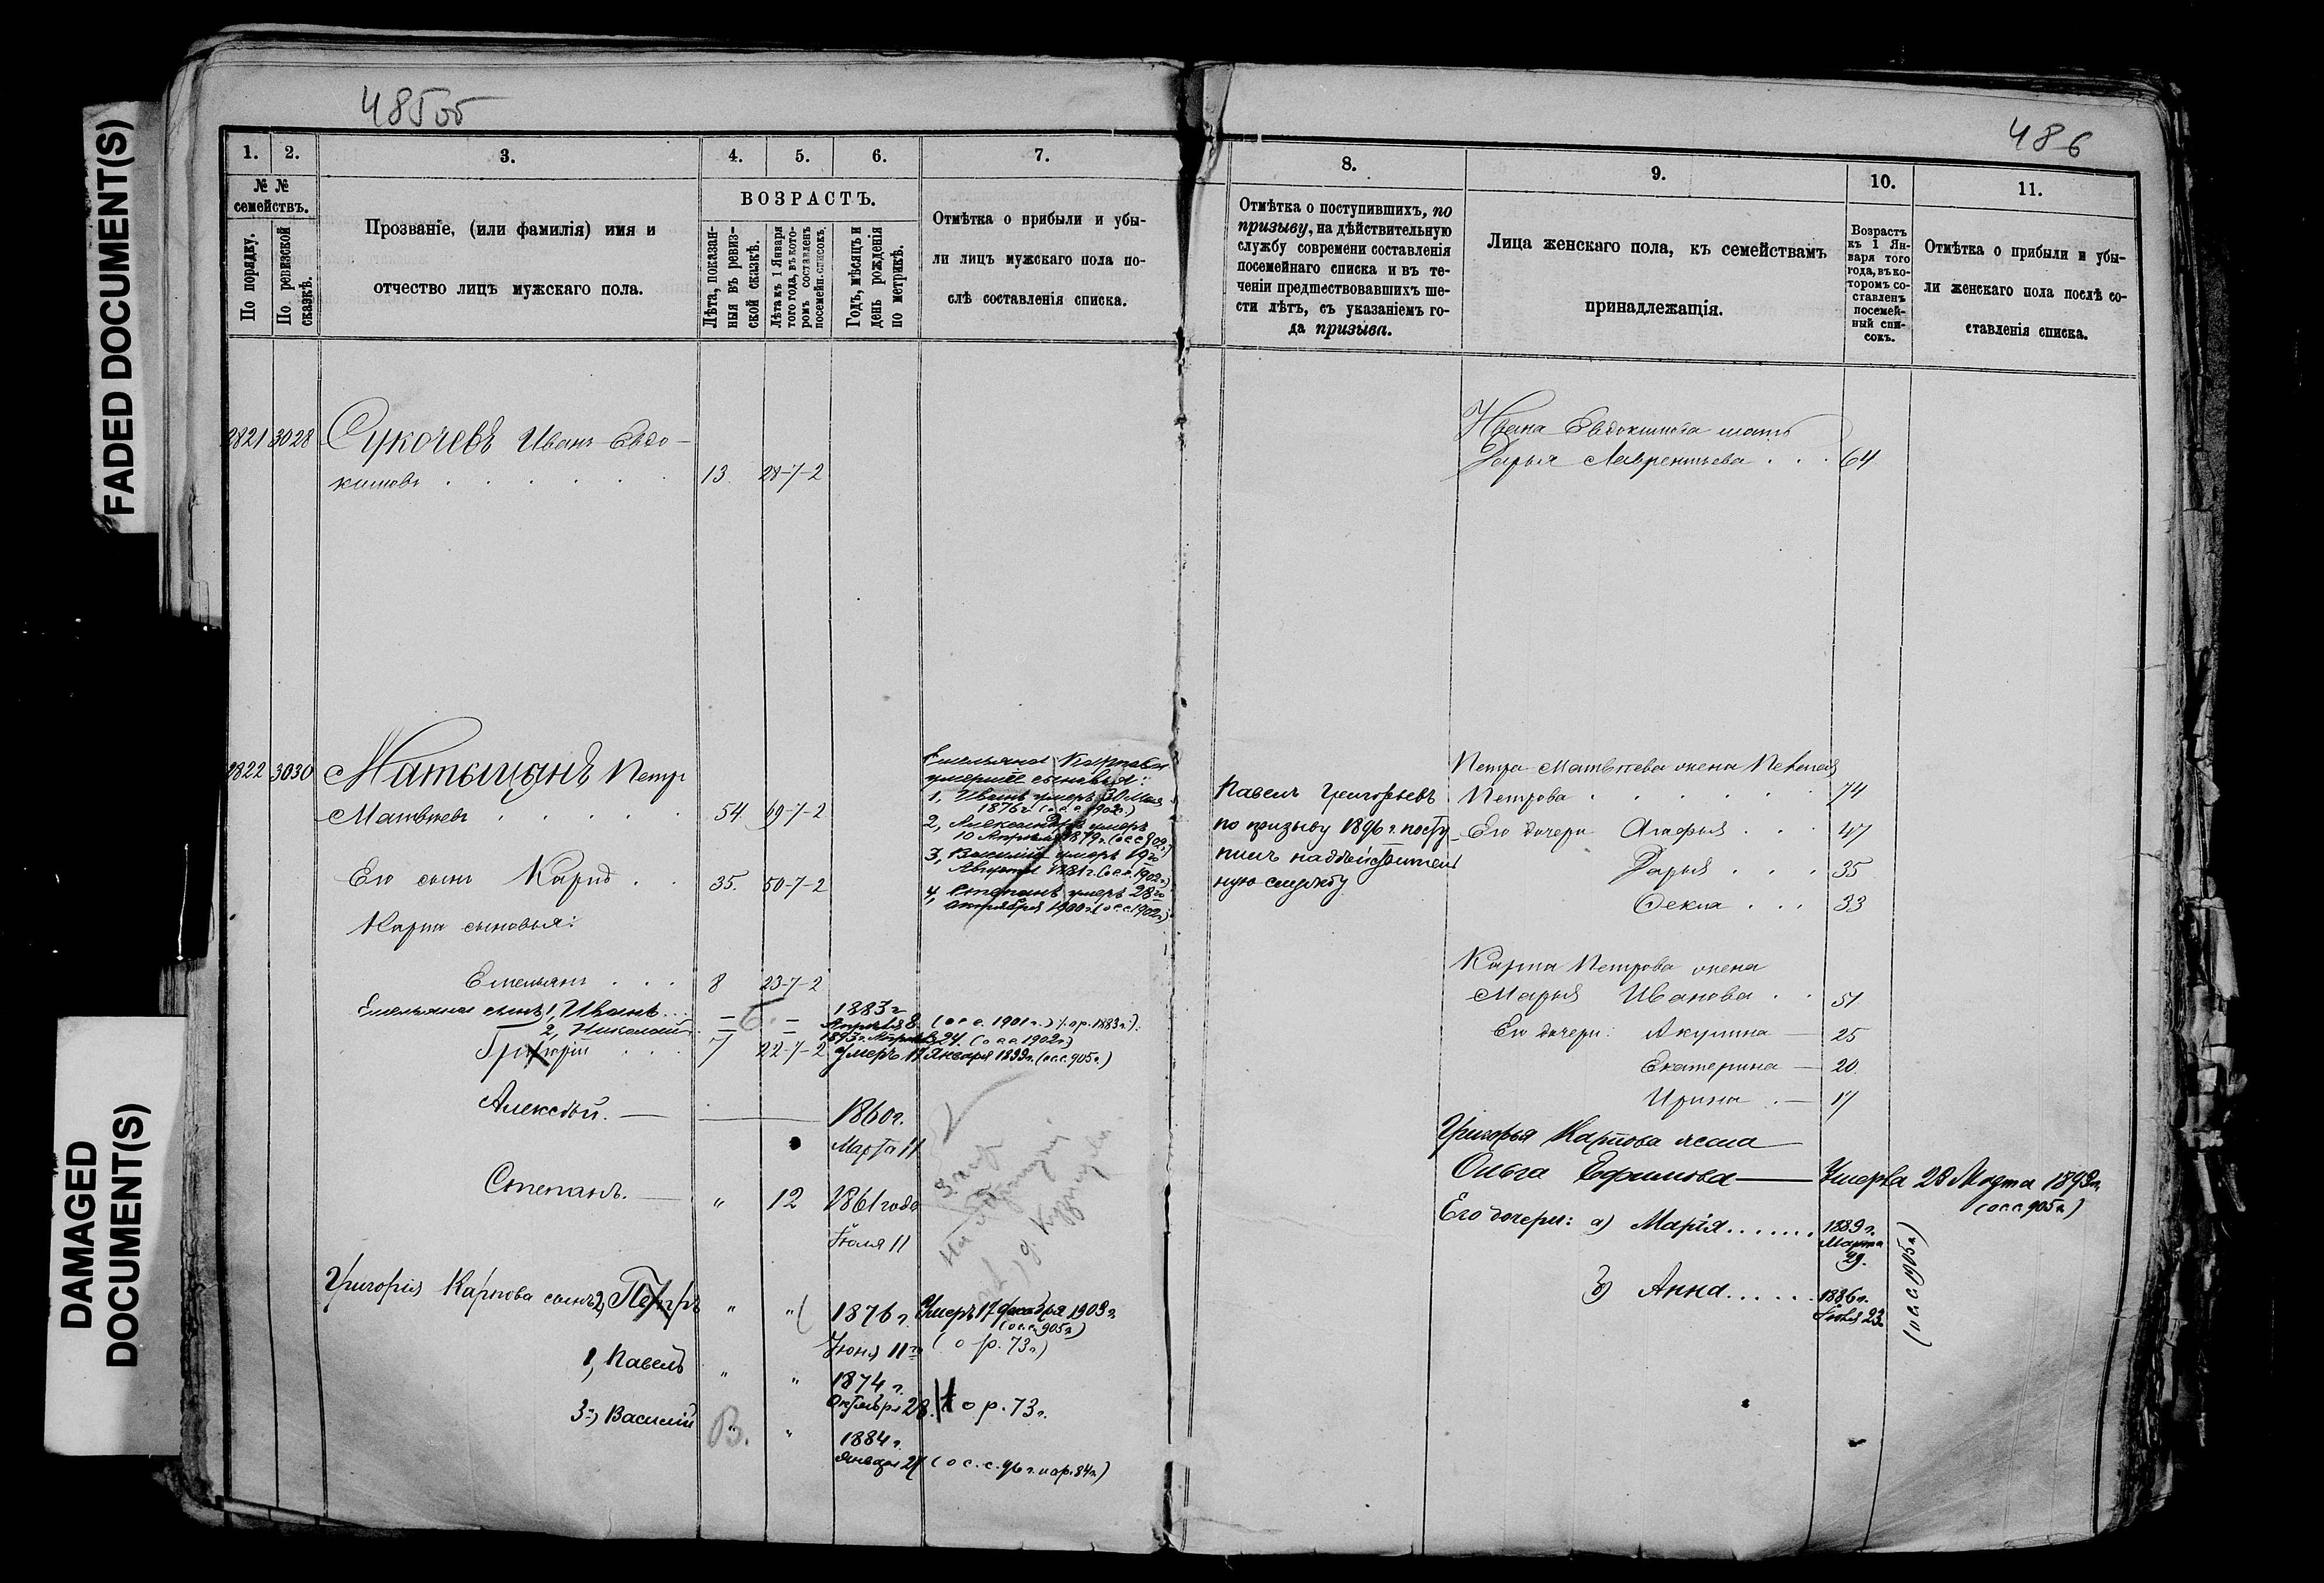 FADED DOCUMENT(S)
DAMAGED
DOCUMENT(S)
485об
486
1.
2.
3.
4.
5.
6.
7.
№ №
семействъ.
По порядку.
По ревизской
сказкѣ.
Прозваніе, (или фамилія) имя и
отчество лицъ мужскаго пола.
ВОЗРАСТЪ.
Лѣта, показан-
ныя въ ревиз-
ской сказкѣ.
Лѣта къ 1 Января
того года, въ кото-
ромъ составленъ
посемейн. списокъ.
Годъ, мѣсяцъ и
день рожденія
по метрикѣ.
Отмѣтка о прибыли и убы-
ли лицъ мужскаго пола по-
слѣ составленія списка.
2821 3028 Сукочевъ Иванъ Евдо-
кимовъ . . . . . . 13. 28-7-2
2822 3030 Матыцынъ Петръ
Матвѣевъ . . . . . 54. 69-7-2
Его сынъ Карпъ . . 35. 50-7-2
Карпа сыновья:
Емельянъ . . . 8 23-7-2
Емельяна сынъ 1, Иванъ... 1883 г
Апрѣля 8. (о с с. 1901 г.)
2, Николай 1893 г. 24. (о с с. 1902 г.)
Григорій . . . 7 22-7-2 умеръ 17 Января 1899 г. (о с с. 905 г.)
Алексѣй. — 1860 г.
Марта 11
Степанъ. — " 12 1861 года
Іюля 11
Григорія Карпова сынъ 2, Петръ " " 1876 г. Умеръ 17 декабря 1903 г.
(о с с. 905 г.)
Іюня 11го (о р. 73 г.)
1, Павелъ " " 1874 г.
Октября 28. о р. 73 г.
3) Василій В. " 1884 г.
Января 27 (о с. с. 96 г. и о р. 84 г.)
Емельяна Карпова
умершіе сыновья:
1, Иванъ умеръ 30 Мая
1876 г. (о с с 1902 г.)
2, Александръ умеръ
10 Апрѣля 1879 г. (о с с 902 г.)
3, Василій умеръ 19го
Августа 1881 г. (о с с. 1902 г.)
4, Степанъ умеръ 28го
октября 1900 г. (о с с 1902 г.)
8.
9.
10.
11.
Отмѣтка о поступившихъ, по
призыву, на дѣйствительную
службу современи составленія
посемейнаго списка и въ те-
ченіи предшествовавшихъ ше-
сти лѣтъ, съ указаніемъ го-
да призыва.
Лица женскаго пола, къ семействамъ
принадлежащія.
Возрастъ
къ 1 Ян-
варя того
года, въ ко-
торомъ со-
ставленъ
посемей-
ный спи-
сокъ.
Отмѣтка о прибыли и убы-
ли женскаго пола послѣ со-
ставленія списка.
Ивана Евдокимова мать
Дарья Лаврентьева . . . 64
Павелъ Григорьевъ
по призыву 1896 г. посту-
пилъ на дѣйствитель
ную службу
Петра Матвѣева жена Пелагея
Петрова . . . . . 74
Его дочери Агафья . . 47
Дарья . . . 35
Фекла . . . 33
Карпа Петрова жена
Марья Иванова . . 51.
Его дочери: Акулина — 25
Екатерина — 20.
Ирина . — 17
Григорья Карпова жена
Ольга Ефимова — Умерла 28 Марта 1893 г.
(о с с. 905 г.)
Его дочери: а) Марія....... 1889 г.
Марта
29.
б) Анна...... 1886 г.
Іюля 23.
(о с с 905 г.)